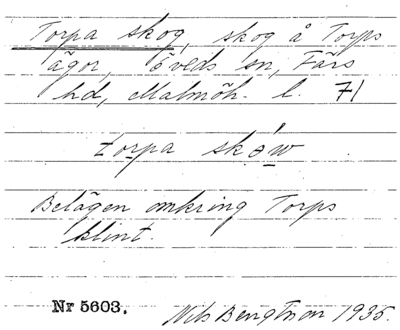 Torpa skog, skog å Torps
ägor, Öveds sn, Färs
hd, Malmöh. l. 71
torpa skó̱w
Belägen omkring Torps
klint.
Nr 5603. Nils Bengtson 1935.